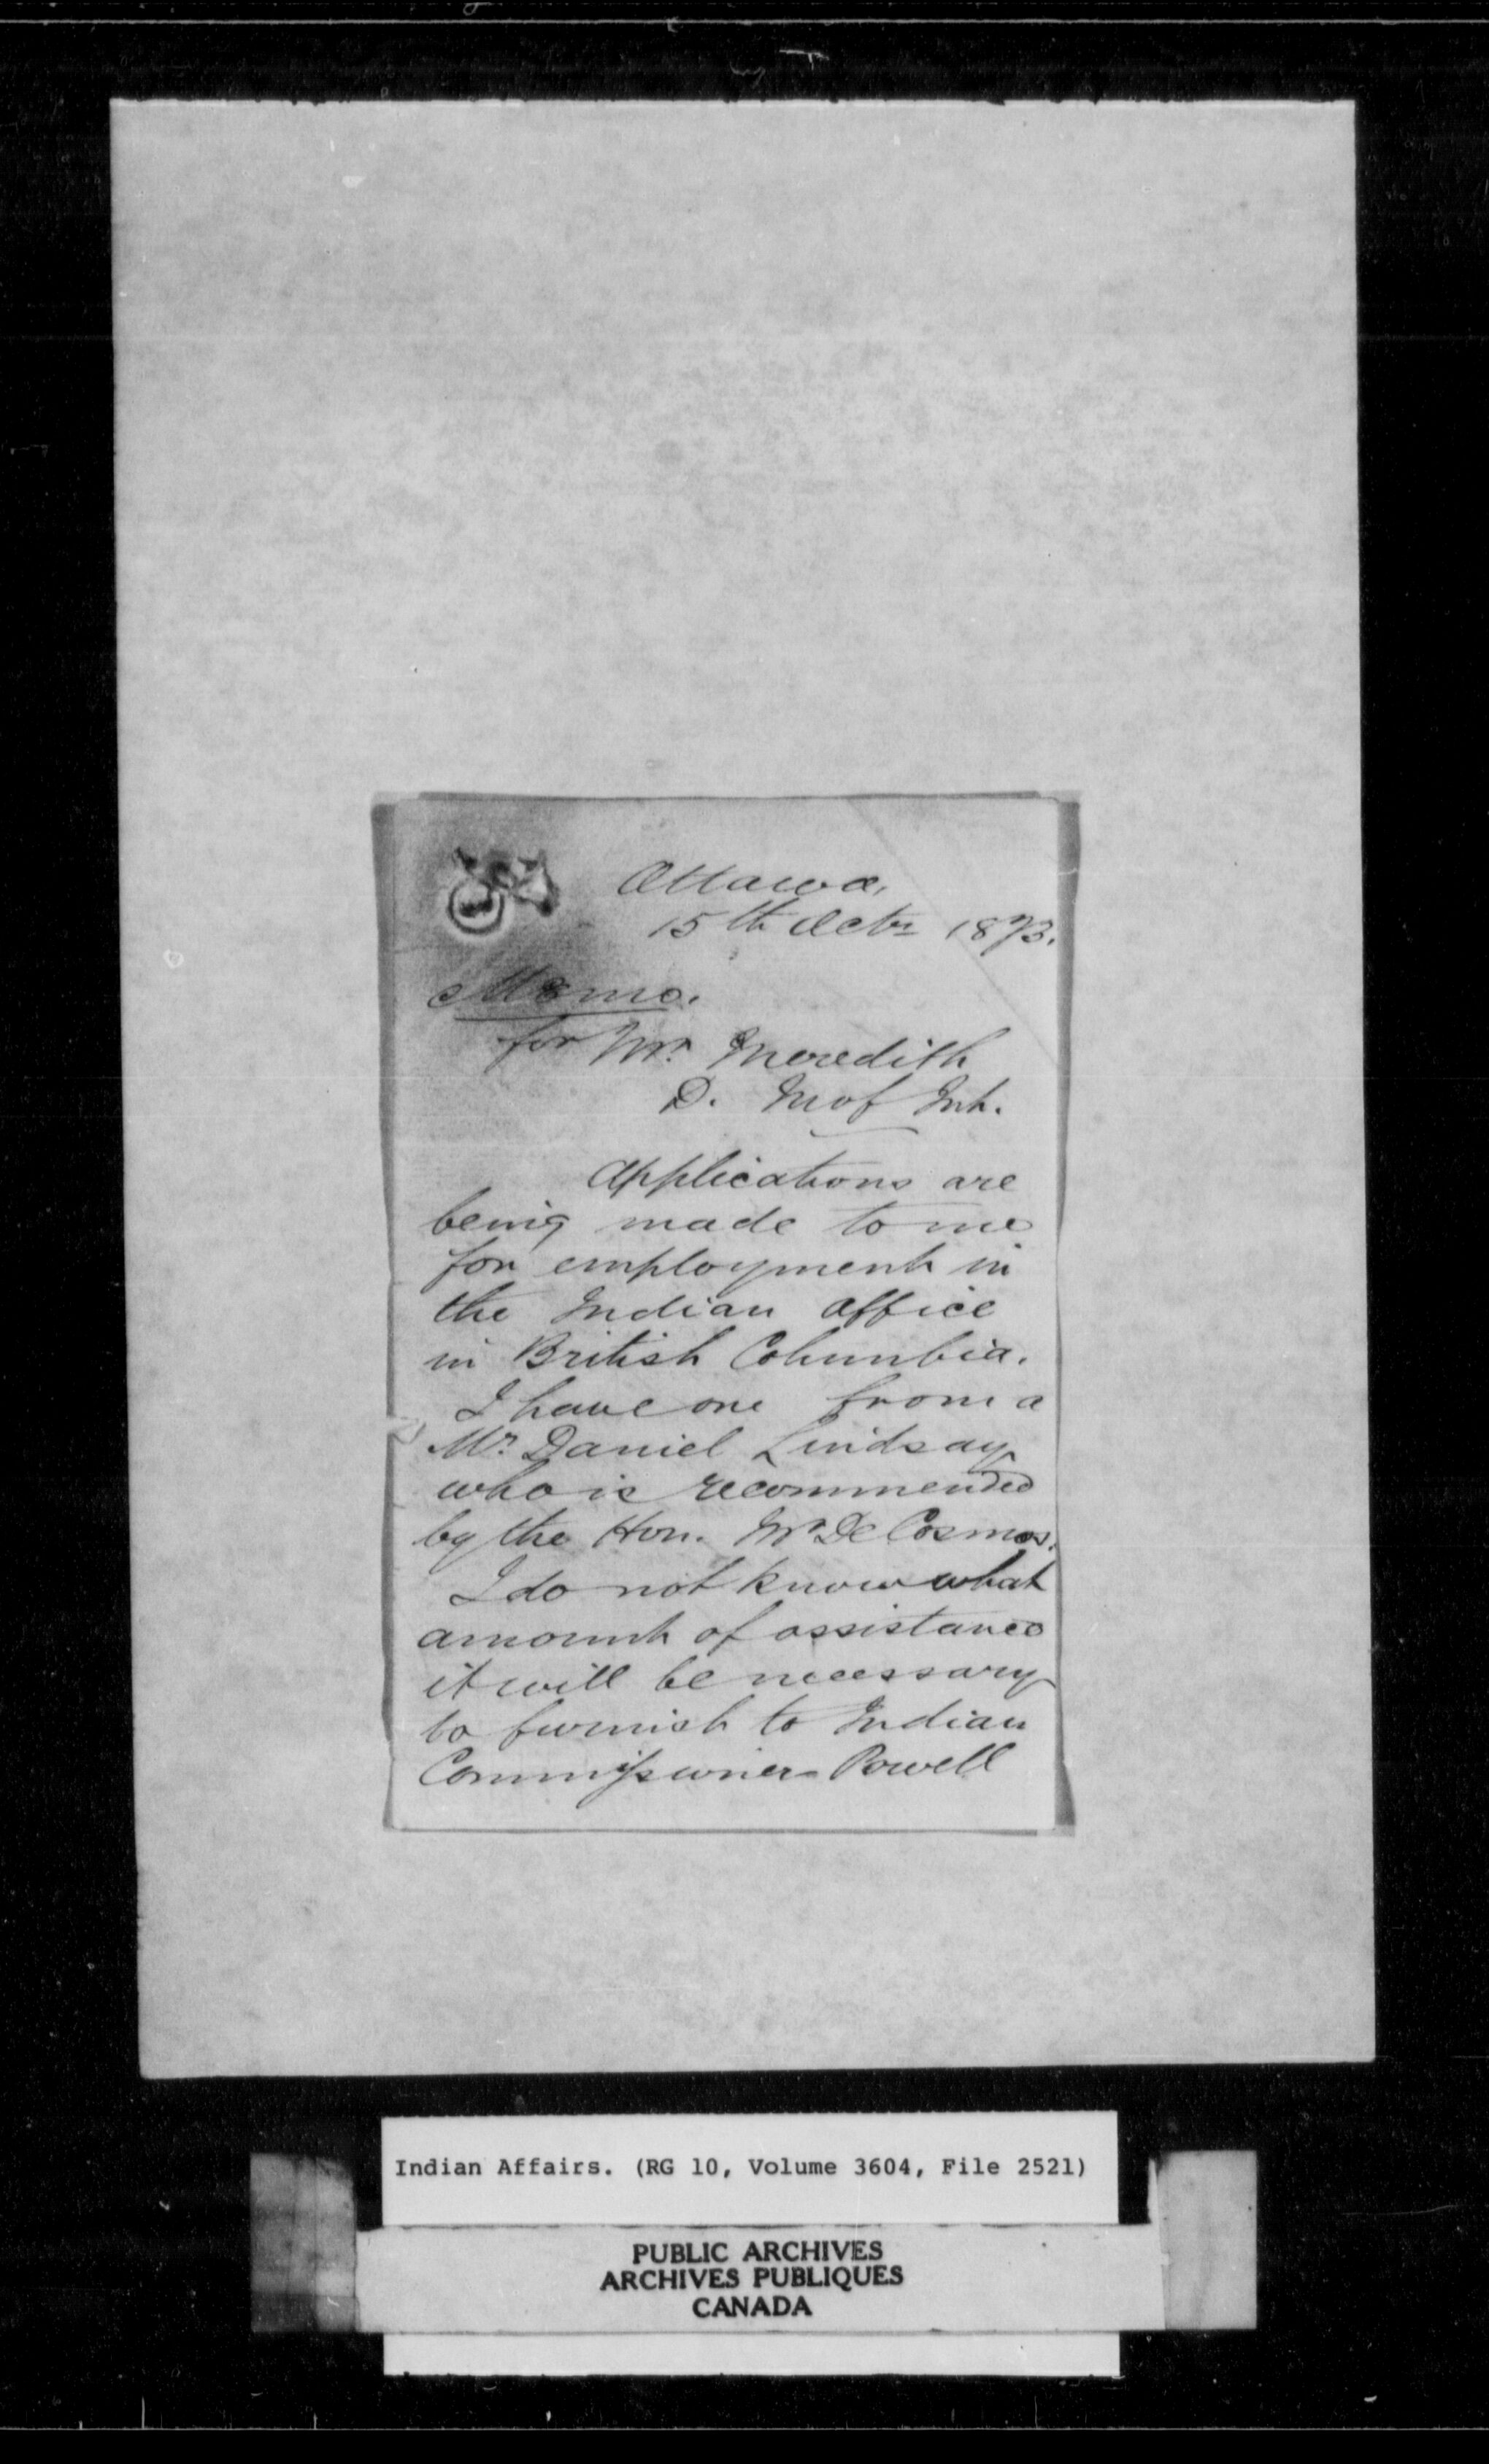 Ottawa,
15th Octr 1873.
Memo.
for Mr. Meredith
D. M of Int.
Applications are
being made to me
for employment in
the Indian Office
in British Columbia.
I have one from a
Mr. Daniel Lindsay
who is recommended
by the Hon. Mr De Cosmos.
I do not know what
amount of assistance
it will be necessary
to furnish to Indian
Commissioner Powell
Indian Affairs. (RG 10, Volume 3604, File 2521)
PUBLIC ARCHIVES
ARCHIVES PUBLIQUES
CANADA